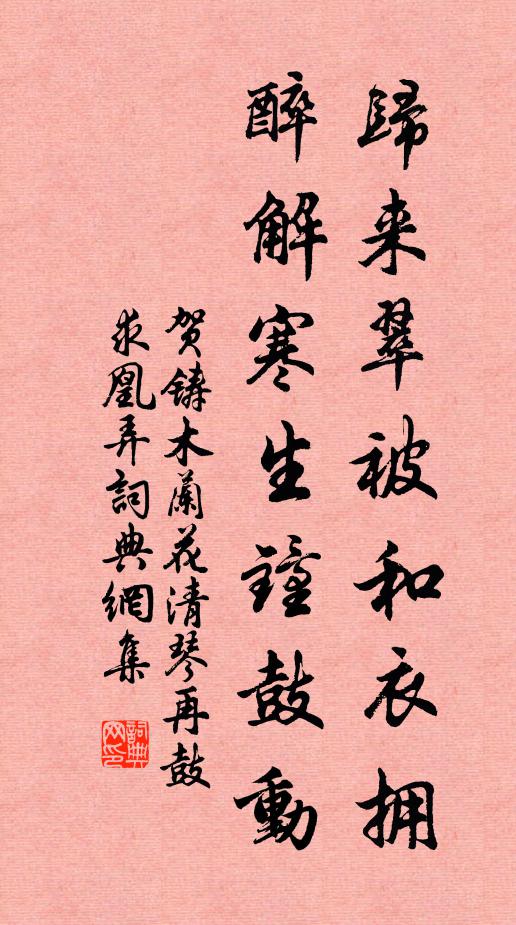 歸来翠被和衣拥
醉解寒生鐘鼓動
贺鑄木蘭花清琴再鼓
求凰弄詞典網集
詞典网印